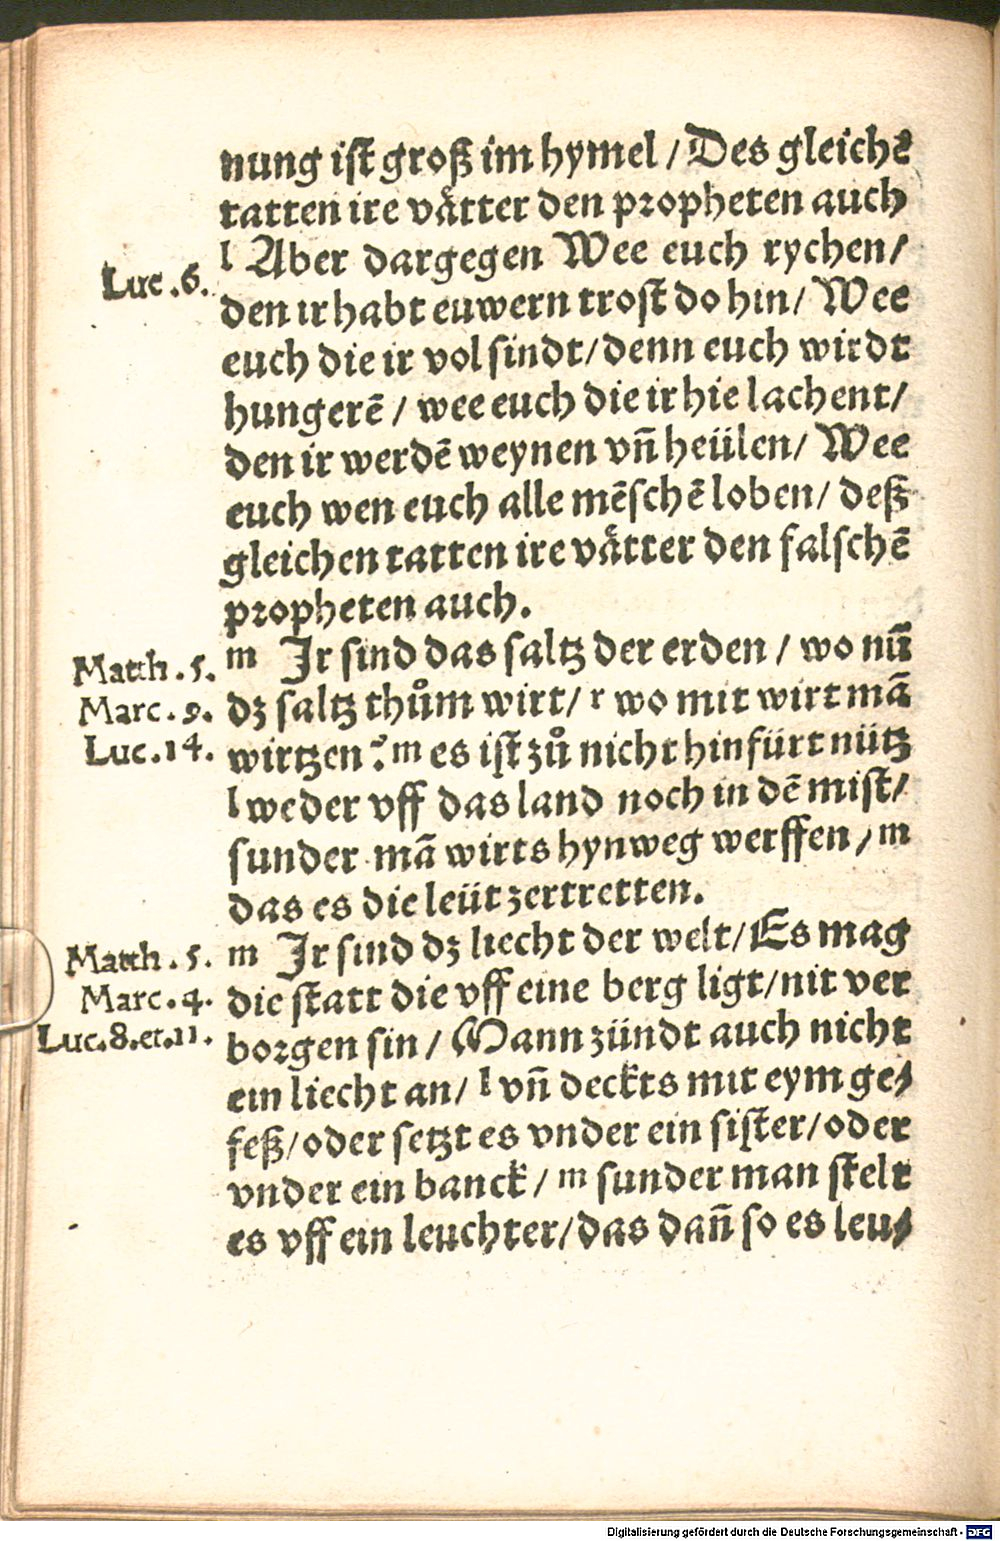 nung ist groß im hymel / Des gleichē
tatten ire våtter den propheten auch
Luc. 6.
l Aber dargegen Wee euch rychen/
den ir habt euwern trost do hin/ Wee
euch die ir vol sindt/denn euch wirdt
hungerē / wee euch die ir hie lachent/
den ir werdē weynen vñ heülen/ Wee
euch wen euch alle mēschē loben/ deß
gleichen tatten ire våtter den falschē
propheten auch.
Matth. 5.
Marc. 9.
Luc. 14.
m Jr sind das saltz der erden / wo nū
dz saltz thům wirt/ r wo mit wirt mā
wirtzen? m es ist zů nicht hinfürt nütz
l weder vff das land noch in dē mist/
sunder mā wirts hynweg werffen / m
das es die leüt zertretten.
Matth. 5.
Marc. 4.
Luc. 8. et. 11.
m Jr sind dz liecht der welt/ Es mag
die statt die vff eine berg ligt/nit ver
borgen sin / Mann zündt auch nicht
ein liecht an/ l vñ deckts mit eym ge/
feß/oder setzt es vnder ein sister/oder
vnder ein banck / m sunder man stelt
es vff ein leuchter/das dañ so es leu/
Digitalisierung gefördert durch die Deutsche Forschungsgemeinschaft - DFG